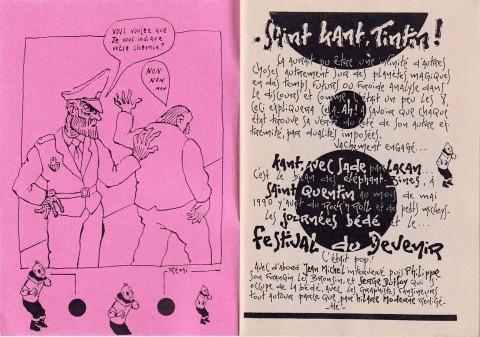 VOUS VOULEZ QUE
JE VOUS INDIQUE
VOTRE CHEMIN?
NON
NON
NON
Saint Kant, Tintin!
SA AURAIT PU ÊTRE UNE INFINITÉ D'AUTRES
CHOSES AUTREMENT SUR DES PLANÈTES MAGIQUES
EN DES TEMPS FUTURS OU FROIDE ANALYSE DANS
LE DISCOURS ET COMME ÉTAIT UN PEU LES 8,
CECI EXPLIQUERA SAVOIR QUE CHAQUE
ÉTAT TROUVE SA DE SON AUTRE EX
TRÉMITÉ, PAR DUALITÉS IMPOSÉES.
VACHEMENT ENGAGÉ...
KANT, AVEC SADE PAR LACAN...
C'EST LE DES ÉLÉPHANT-ZINES, À
SAINT QUENTIN AU MOIS DE MAI
1990 Y'AVAIT DU ROCK'N ROLL ET DE
LES JOURNÉES BÉDÉ ET LE...
FESTIVAL DU DEVENIR
C'ÉTAIT POP!
AVEC D'ABORD JEAN MICHEL INTERVIENT PUIS PHILIPPE
SON FRANGIN LES ET SERGE QUI S'
OCCUPE DE LA BÉDÉ, AVEC LES GRAPHISTES FANZINEURS
TOUT AUTOUR PARCE QUE, PAR HILARE MODERNE RÉDIGÉ-